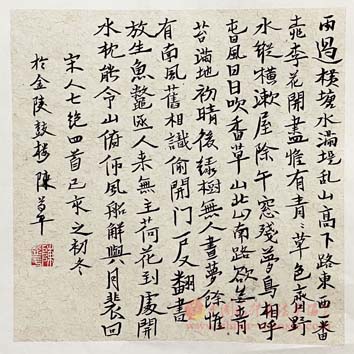 雨過橫塘水滿堤亂山高下路東西一番
桃李花開盡惟有青青草色齊野
水縱橫漱屋除午窓殘夢鳥相呼
春風日日吹香草山北山南路欲無青
苔滿地初晴後綠樹無人晝夢餘惟
有南風舊相識偷開門戶又翻書
放生魚鱉逐人來無主荷花到處開
水枕能令山俯仰風船解與月裴回
宋人七絕四首己亥之初冬
於金陵鼓樓陳